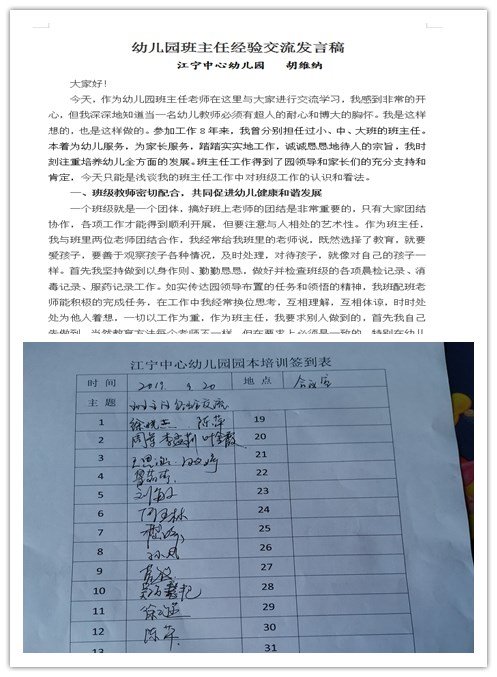 幼儿园班主任经验交流发言稿
江宁中心幼儿园 胡维纳
大家好！
今天，作为幼儿园班主任老师在这里与大家进行交流学习，我感到非常的开
心，但我深深地知道当一名幼儿教师必须有超人的耐心和博大的胸怀。我是这样
想的，也是这样做的。参加工作 8 年来，我曾分别担任过小、中、大班的班主任。
本着为幼儿服务，为家长服务，踏踏实实地工作，诚诚恳恳地待人的宗旨，我时
刻注重培养幼儿全方面的发展。班主任工作得到了园领导和家长们的充分支持和
肯定，今天只能是浅谈我的班主任工作中对班级工作的认识和看法。
一、班级教师密切配合，共同促进幼儿健康和谐发展
一个班级就是一个团体，搞好班上老师的团结是非常重要的，只有大家团结
协作，各项工作才能得到顺利开展，但要注意与人相处的艺术性。作为班主任，
我与班里两位老师团结合作，我经常给我班里的老师说，既然选择了教育，就要
爱孩子，要善于观察孩子各种情况，及时处理，对待孩子，就像对自己的孩子一
样。首先我坚持做到以身作则、勤勤恳恳，做好并检查班级的各项晨检记录、消
毒记录、服药记录工作。如实传达园领导布置的任务和领悟的精神，我班配班老
师能积极的完成任务，在工作中我经常换位思考，互相理解，互相体谅，时时处
处为他人着想，一切以工作为重，作为班主任，我要求别人做到的，首先我自己
先做到，当然教育方法每个老师不一样，但在要求上必须是一致的，特别在幼儿
江宁中心幼儿园园本培训签到表
时 间 2019 3.20 地 点 会议室
主 题 班主任经验交流
1 陈萍 19
2 20
3 21
4 22
5 23
6 24
7 25
8 孙凤 26
9 27
10 28
11 29
12 陈萍 30
13 31